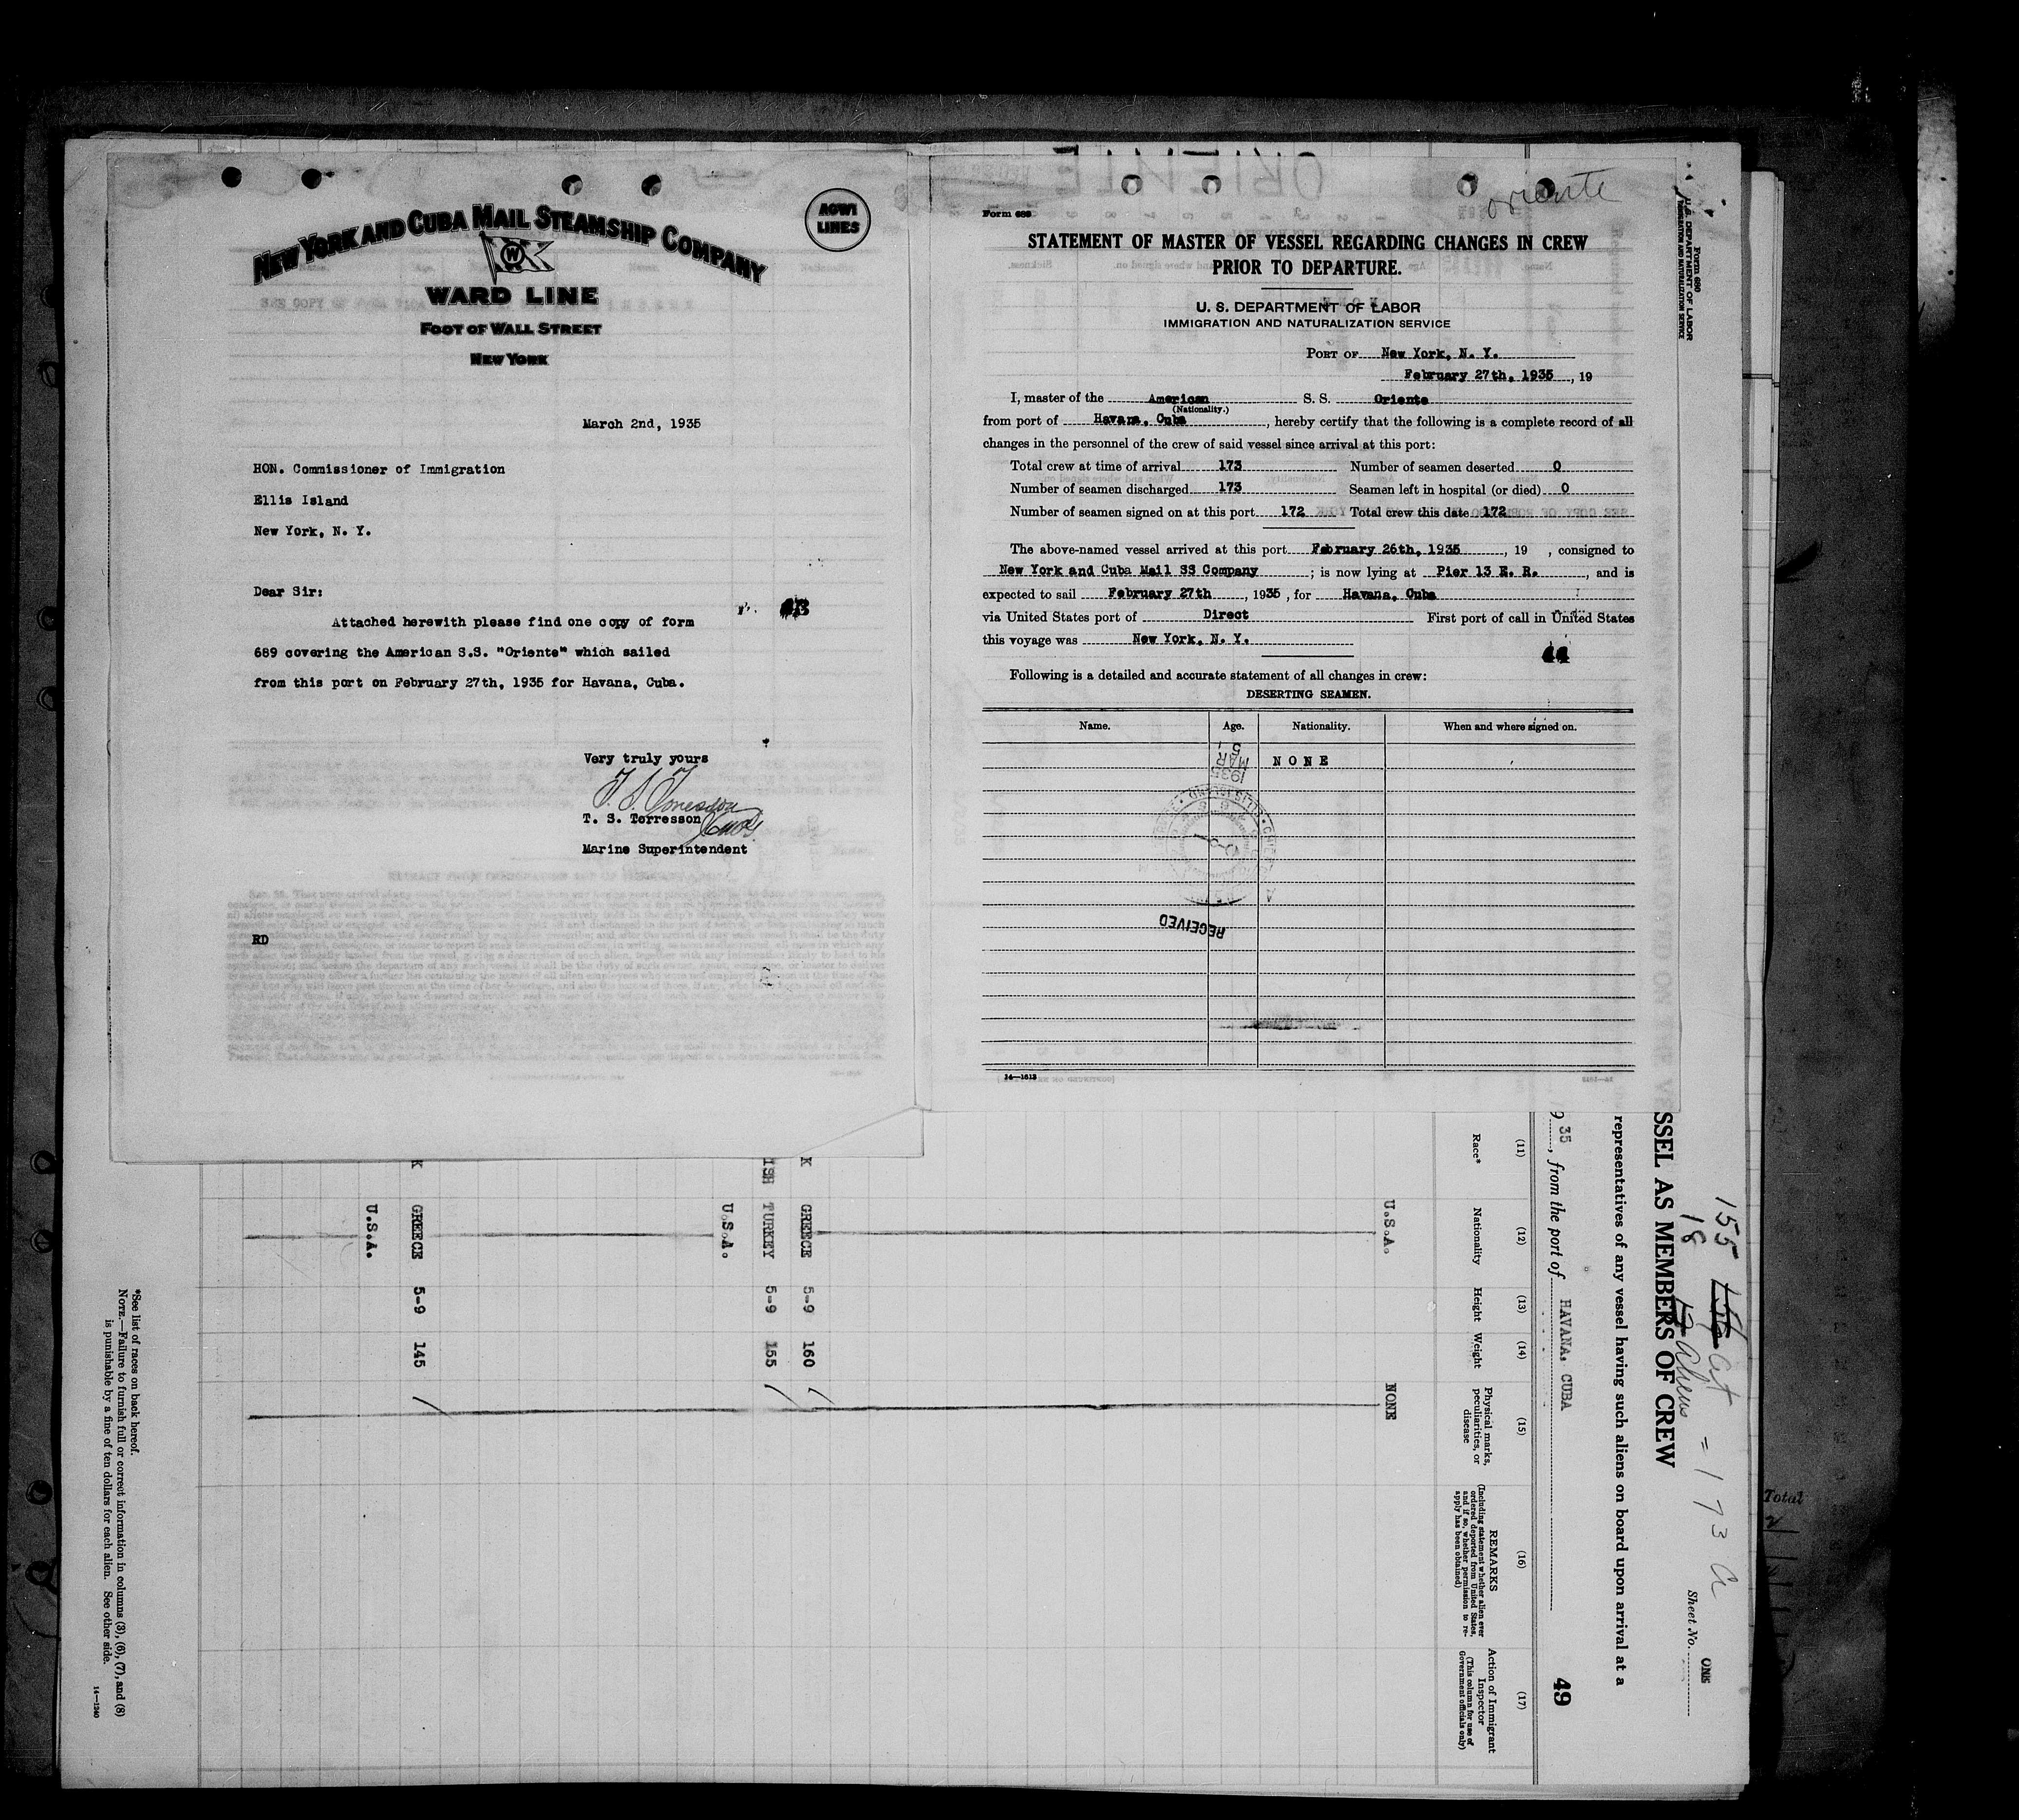 NEW YORK AND CUBA MAIL STEAMSHIP COMPANY
W
AGWI
LINES
WARD LINE
FOOT OF WALL STREET
NEW YORK
March 2nd, 1935
HON. Commissioner of Immigration
Ellis Island
New York, N. Y.
Dear Sir:
Attached herewith please find one copy of form
689 covering the American S.S. "Oriente" which sailed
from this port on February 27th, 1935 for Havana, Cuba.
Very truly yours
T. S. Torresson
Marine Superintendent
RD
Form 689
oriente
STATEMENT OF MASTER OF VESSEL REGARDING CHANGES IN CREW
PRIOR TO DEPARTURE.
U. S. DEPARTMENT OF LABOR
IMMIGRATION AND NATURALIZATION SERVICE
PORT OF New York, N. Y.
February 27th, 1935, 19
I, master of the American S. S. Oriente
(Nationality.)
from port of Havana, Cuba, hereby certify that the following is a complete record of all
changes in the personnel of the crew of said vessel since arrival at this port:
Total crew at time of arrival 173 Number of seamen deserted 0
Number of seamen discharged 173 Seamen left in hospital (or died) 0
Number of seamen signed on at this port 172 Total crew this date 172
The above-named vessel arrived at this port February 26th, 1935, 19 , consigned to
New York and Cuba Mail SS Company ; is now lying at Pier 13 E. R. , and is
expected to sail February 27th , 1935 , for Havana, Cuba
via United States port of Direct First port of call in United States
this voyage was New York, N. Y.
44
Following is a detailed and accurate statement of all changes in crew:
DESERTING SEAMEN.
Name. Age. Nationality. When and where signed on.
NONE
1935 MAR 5
RECEIVED
14—1613
Form 680
U. S. DEPARTMENT OF LABOR
IMMIGRATION AND NATURALIZATION SERVICE
155
18 Aliens = 173
Sheet No. ONE
SSEL AS MEMBERS OF CREW
representatives of any vessel having such aliens on board upon arrival at a
35, from the port of HAVANA, CUBA
49
(11) (12) (13) (14) (15) (16) (17)
Race* Nationality Height Weight
Physical marks, peculiarities, or disease
REMARKS
(Including statement whether alien ever
ordered deported from United States,
and if so, whether permission to re-
apply has been obtained)
Action of Immigrant
Inspector
(This column for use of
Government officials only)
U.S.A. NONE
K GREECE 5-9 160
ISH TURKEY 5-9 155
U.S.A.
K GREECE 5-9 145
U.S.A.
*See list of races on back hereof.
NOTE.—Failure to furnish full or correct information in columns (3), (6), (7), and (8)
is punishable by a fine of ten dollars for each alien. See other side.
14—1240
Total